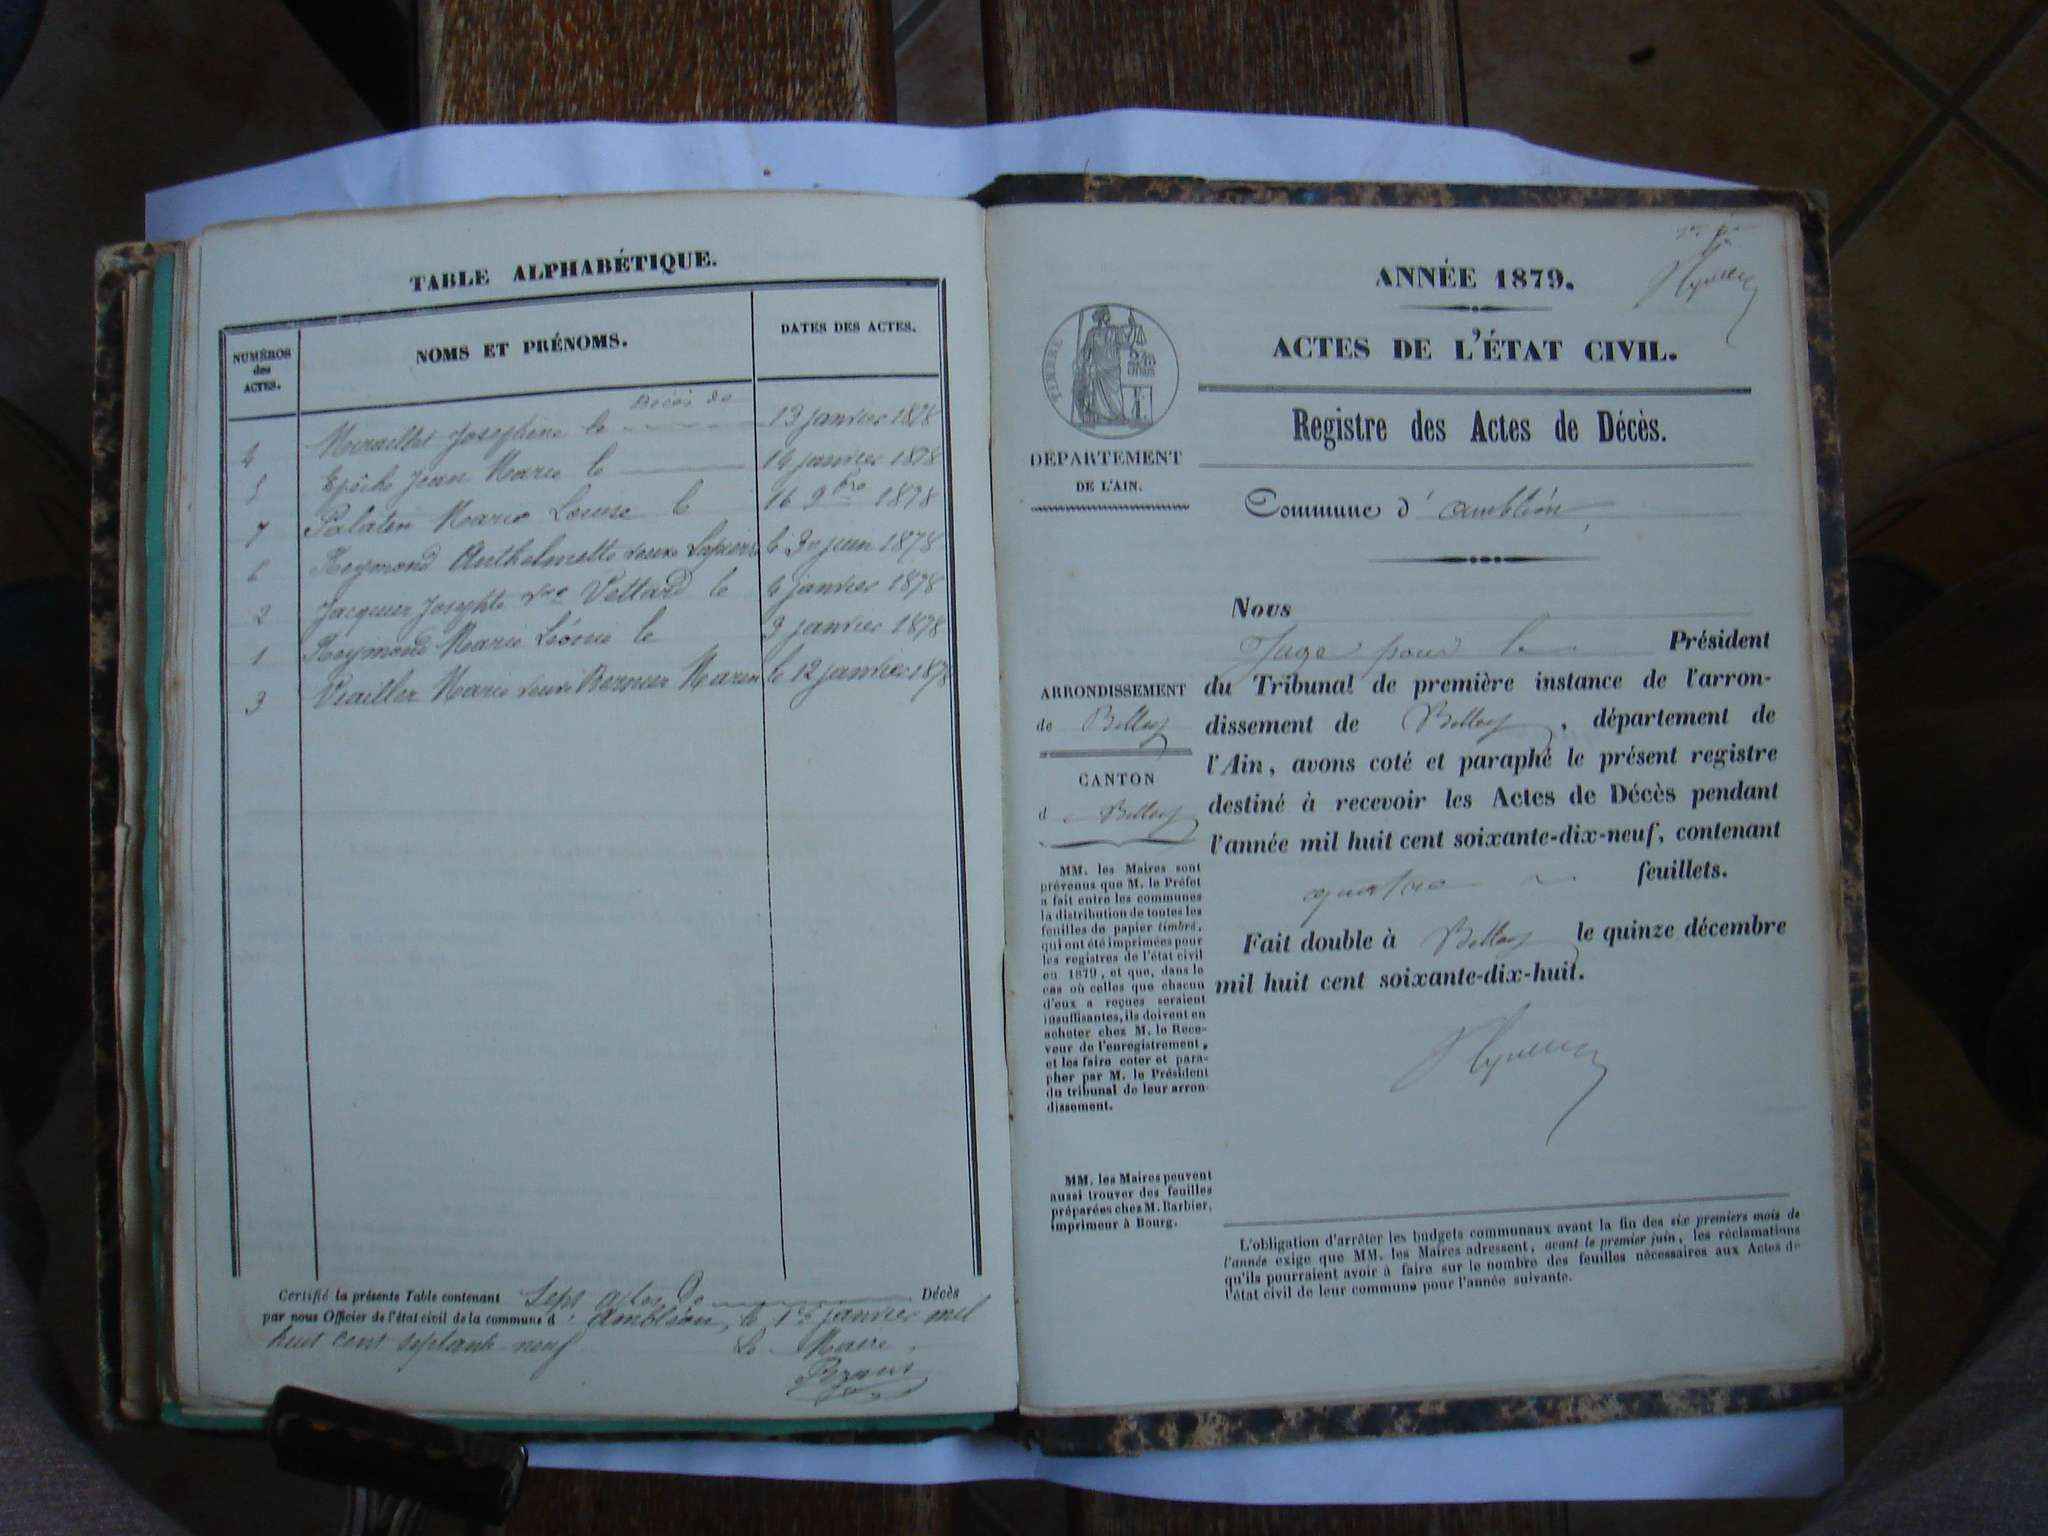 TABLE ALPHABÉTIQUE.
NUMÉROS
des
ACTES.
NOMS ET PRÉNOMS.
DATES DES ACTES.
Décès de
4 Josephine le 13 janvier 1878
5 Jean Marie le 14 janvier 1878
7 Palatin Marie Louise le 16 9bre 1878
6 Reymond Anthelmette veuve le 30 juin 1878
2 Jacquier Josephte vve Vettard le 6 janvier 1878
1 Reymond Marie Léonie le 9 janvier 1878
3 Viailler Marie veuve Bernier Marin le 12 janvier 1878
Certifié la présente Table contenant Sept actes de Décès
par nous Officier de l'état civil de la commune d'Ambléon, le 1er janvier mil
huit cent septante neuf Le Maire
ANNÉE 1879.
ACTES DE L'ÉTAT CIVIL.
Registre des Actes de Décès.
TIMBRE
DÉPARTEMENT
DE L'AIN.
Commune d'Ambléon
ARRONDISSEMENT
de Belley
CANTON
d Belley
MM. les Maires sont
prévenus que M. le Préfet
a fait entre les communes
la distribution de toutes les
feuilles de papier timbré,
qui ont été imprimées pour
les registres de l'état civil
en 1879, et que, dans le
cas où celles que chacun
d'eux a reçues seraient
insuffisantes, ils doivent en
acheter chez M. le Rece-
veur de l'enregistrement,
et les faire coter et para-
pher par M. le Président
du tribunal de leur arron-
dissement.
MM. les Maires peuvent
aussi trouver des feuilles
préparées chez M. Barbier,
imprimeur à Bourg.
Nous
Juge pour le Président
du Tribunal de première instance de l'arron-
dissement de Belley, département de
l'Ain, avons coté et paraphé le présent registre
destiné à recevoir les Actes de Décès pendant
l'année mil huit cent soixante-dix-neuf, contenant
quatre feuillets.
Fait double à Belley le quinze décembre
mil huit cent soixante-dix-huit.
L'obligation d'arrêter les budgets communaux avant la fin des six premiers mois de
l'année exige que MM. les Maires adressent, avant le premier juin, les réclamations
qu'ils pourraient avoir à faire sur le nombre des feuilles nécessaires aux Actes de
l'état civil de leur commune pour l'année suivante.